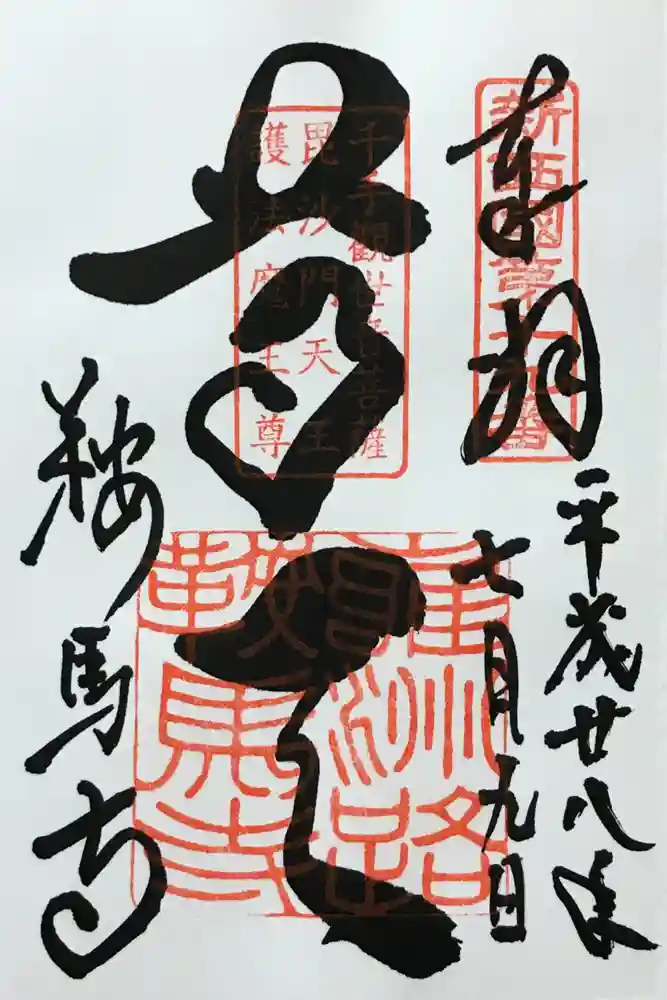 奉拝
新西國第十九番
平成廿八年
七月九日
尊天
千手觀世音菩薩
毘沙門天王
護法魔王尊
雍州路
鞍馬寺
鞍馬寺